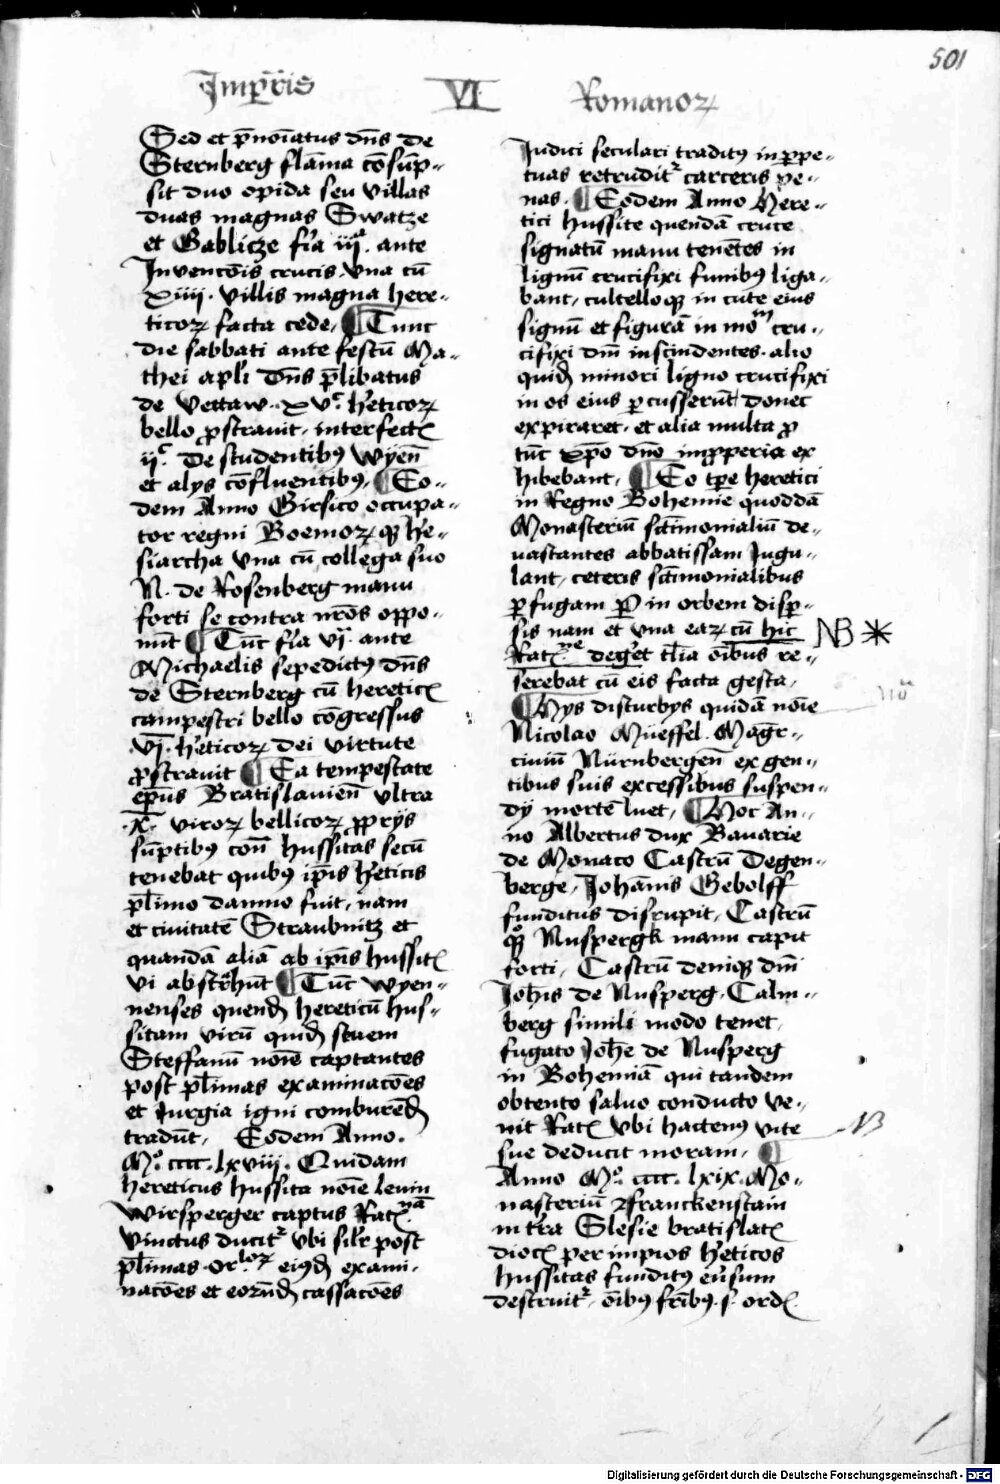 501
Imp̄r̄is VI Romanoꝝ
Sed et p̄noīatus dn̄s de
Sternberg flāma cōsūp-
sit duo opida seu villas
duas magnas Swatze
et Gablicze fīa iiiª. ante
Invencōis crucis vna cū
xiiii. villis magna here-
ticoꝝ facta cede, ¶ Tunc
die sabbati ante festū Ma-
thei apl̄i Dn̄s p̄libatus
de Vettaw. xv.ᶜ h̄eticoꝝ
bello ꝓstravit, interfect̄
ii.ᶜ De studentibꝰ Wyēn
et alys cōfluentibꝰ, ¶ Eo-
dem Anno Girsico occupa-
tor regni Boemoꝝ qꝫ he-
siarcha vna cū collega suo
N. de Rosenberg manu
forti se contra nr̄os oppo-
nūt ¶ Tūc fīa vi. ante
Michaelis sepedictꝰ dn̄s
de Sternberg cū heretic̄
campestri bello cōgressus
vi. h̄eticoꝝ dei virtute
ꝓstravit ¶ Ea tempestate
ep̄us Bratislavien̄ vltra
x. viroꝝ bellicoꝝ ꝓprijs
sūptibꝰ con̄ hussitas secū
tenebat quibꝰ ip̄is h̄eticis
pl̄imo damno fuit, nam
et civitatē Straubnitz et
quandā aliā ab ip̄is hussit̄
vi abstr̄hūt ¶ Tūc wyen-
nenses quend̄ hereticū hus-
sitam virū quid̄ scuem
Steffanū noīe captantes
post pl̄imas examinacōes
et Jurgia igni comburēd̄
tradūt, Eodem Anno.
M.º cccc. lxviii. Quidam
hereticus hussita noīe levin
Wirsperger captus Rat̄.nā
vinctus ducitᵣ vbi sil̄r post
pl̄imas or.loꝝ eiꝰd̄ exami-
nacōes et eorūd̄ cassacōes
Judici seculari traditꝰ in ꝑpe-
tuas retruditᵣ carceris pe-
nas. ¶ Eodem Anno Here-
tici hussite quendā cruce
signatū manu tenētes in
lignū crucifixi funibꝰ liga-
bant, cultelloqꝫ in cute eius
signū et figurā in moᵐ cru-
cifixi dm̄ inscindentes. alio
quid̄ minori ligno crucifixi
in os eius ꝑcusserūt donec
expiraret, et alia multa ꝓ
tūc xp̄o dn̄o imꝓperia ex
hibebant, ¶ Eo tꝑe heretici
in Regno Bohemie quoddā
Monasteriū sc̄timonialiū de-
vastantes abbatissam Jugu-
lant, ceteris sc̄timonialibus
ꝑ fugam in orbem disp̄-
sis nam et vna eaꝝ cū hic NB ✳
Rat̄.ne deg̣et tl̄ia oībus re-
serebat cū eis facta gesta,
¶ Hys disturbys quidā noīe
Nicolao Müeffel. Magr̄-
civiū Nürnbergen̄ exgen-
tibus suis excessibus suspen-
dij mortē luet, ¶ Hoc An-
no Albertus dux Bavarie
de Monaco Castrū Degen-
berge, Johānis Gebolff
funditus disrupit, Castrū
qꝫ Nuspergk manu capit
forti, Castrū deniqꝫ dn̄i
Joh̄is de Nusperg, Calm-
berg simili modo tenet,
fugato Joh̄e de Nusperg
in Bohemiā qui tandem
obtento salvo conducto ve-
nit Rat̄ vbi hactenꝰ vite NB
sue deducit moram, ¶
Anno M.º cccc. lxix. Mo-
nasteriū franckenstain
in tr̄a Slesie bratislat̄
dioc̄ per impios h̄eticos
hussitas funditꝰ
destruitᵣ, oībꝰ fr̄ibꝰ. s. ord̄.
Digitalisierung gefördert durch die Deutsche Forschungsgemeinschaft - DFG